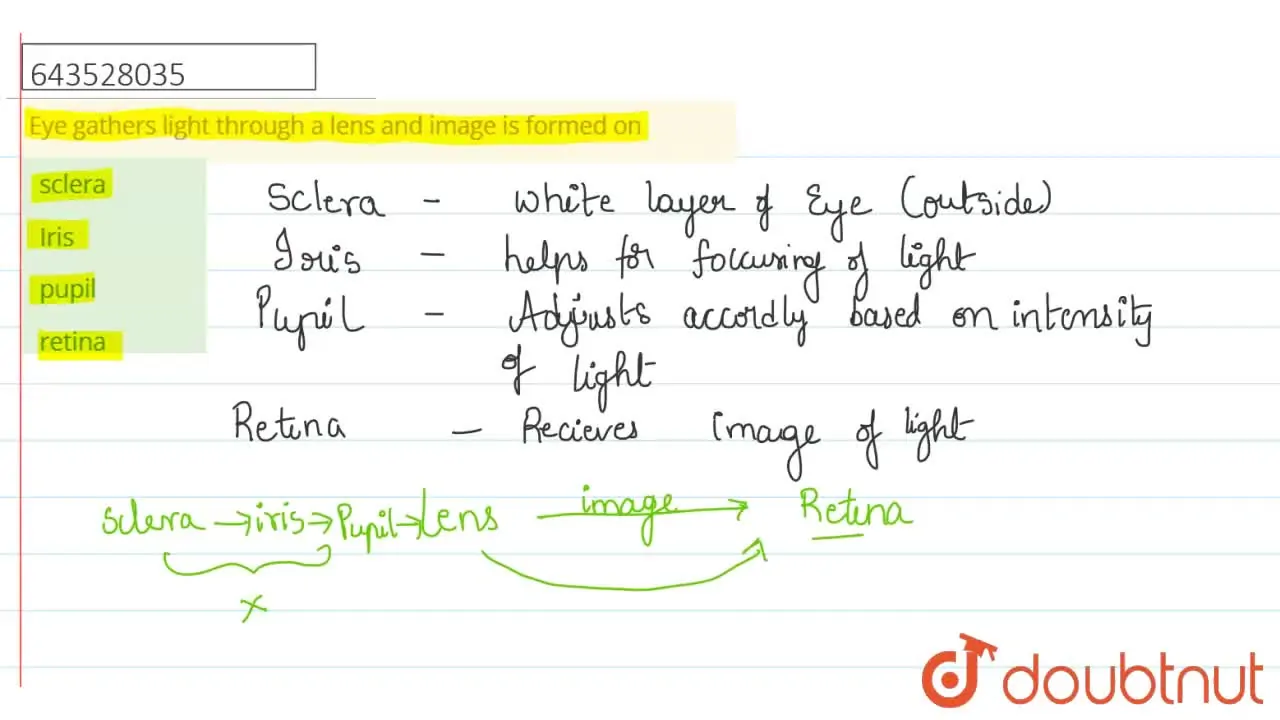 643528035
Eye gathers light through a lens and image is formed on
sclera
Iris
pupil
retina
Sclera - White layer of Eye (outside)
Iris - helps for focusing of light
Pupil - Adjusts accordly based on intensity
of light
Retina - Recieves Image of light
Sclera → iris → Pupil → Lens image → Retina
x
doubtnut